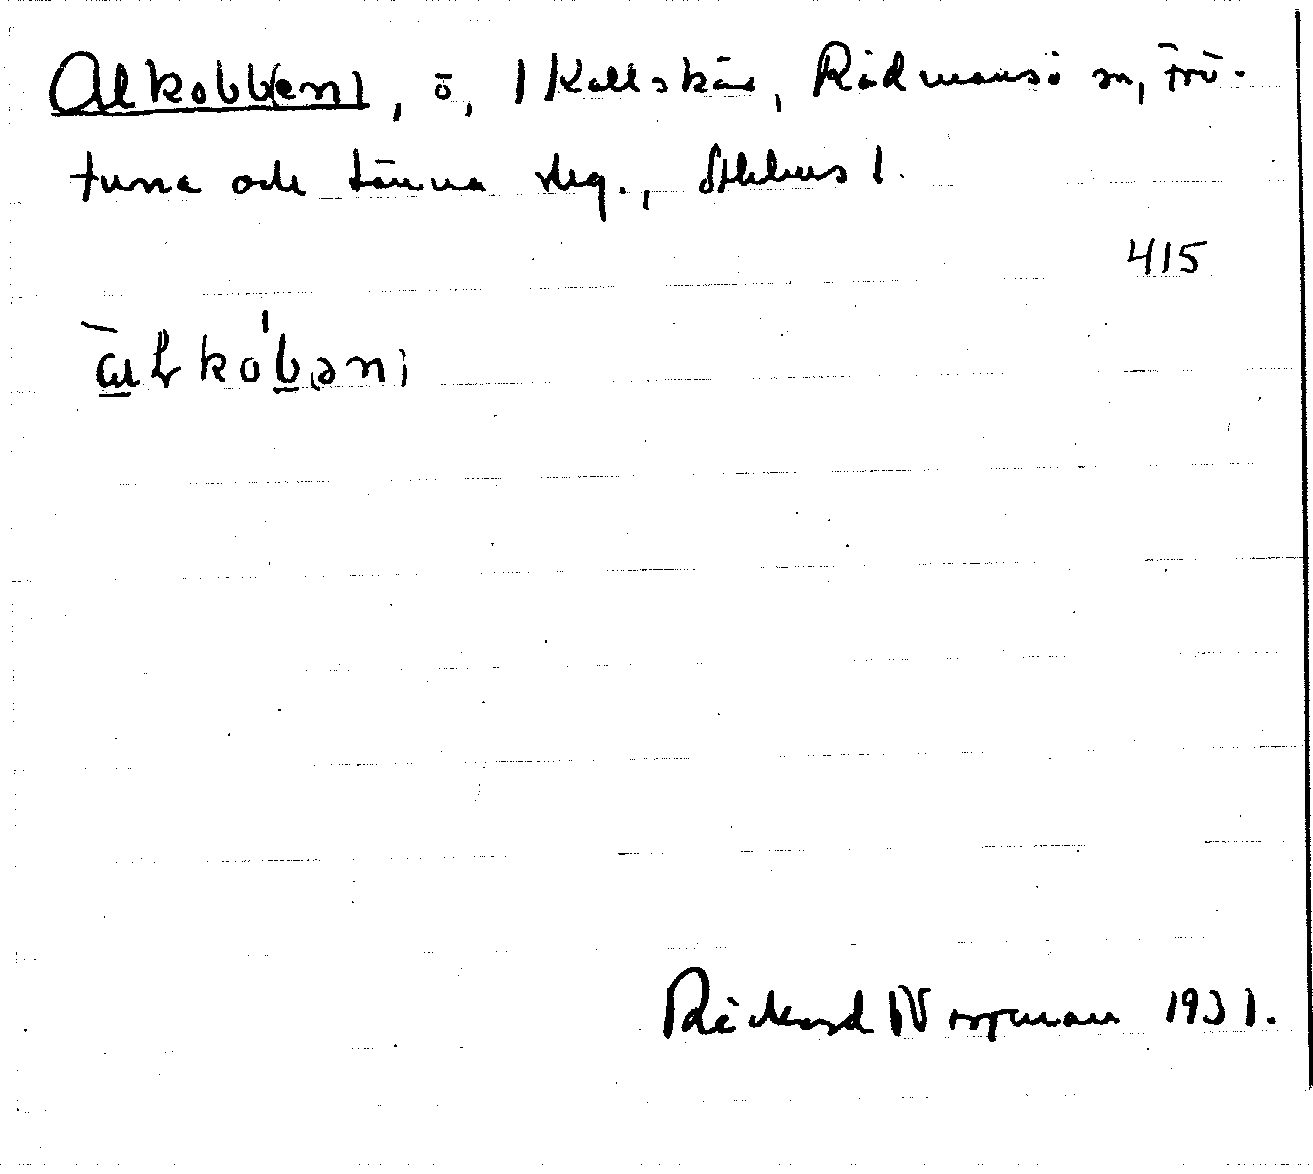 Alkobb(en), ö, 1 Kallskär, Rådmansö sn, Frö-
tuna och Länna skg., Sthlms l.
415
ɑlkobən
Rickard Norrman 1931.